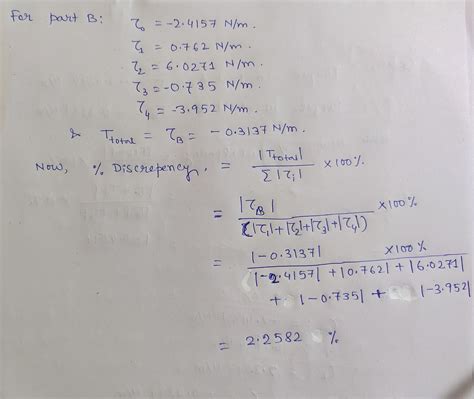 For part B: τ₀ = -2.4157 N/m.
τ₁ = 0.762 N/m.
τ₂ = 6.0271 N/m.
τ₃ = -0.735 N/m.
τ₄ = -3.952 N/m.
& Ttotal = τB = -0.3137 N/m.
Now, % Discrepency. = |Ttotal| / Σ|τi| ×100%
= |τB| / (|τ₁|+|τ₂|+|τ₃|+|τ₄|) ×100%
= |-0.3137| ×100%
|-2.4157| + |0.762| + |6.0271|
+ |-0.735| + |-3.952|
= 2.2582 %